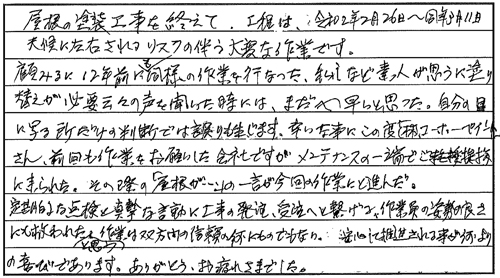 屋根の塗装工事を終えて。工程は、令和2年2月26日〜同年3月11日
天候に左右されてリスクの伴う大変な作業です。
顧みるに12年前に同様の作業を行なった、私しなど素人が思うに塗り
替えが必要云々の声を聞いた時には、まだへ早いと思った。自分の目
に写る所だけの判断では誤りも生じます。幸いな事にこの度
さん、前回も作業をお願いした会社ですがメンテナンスの一端でご
に来られた。その際の「屋根が…」の一言が今回の作業にと進んだ。
定期的な点検と真摯な言動に工事の発注、受注へと繋げ、作業員の姿勢の良さ
にも救われたと思う 作業は双方間の信頼の何にものでもない。安心して推進される事が何より
の喜びであります。ありがとう、お疲れさまでした。